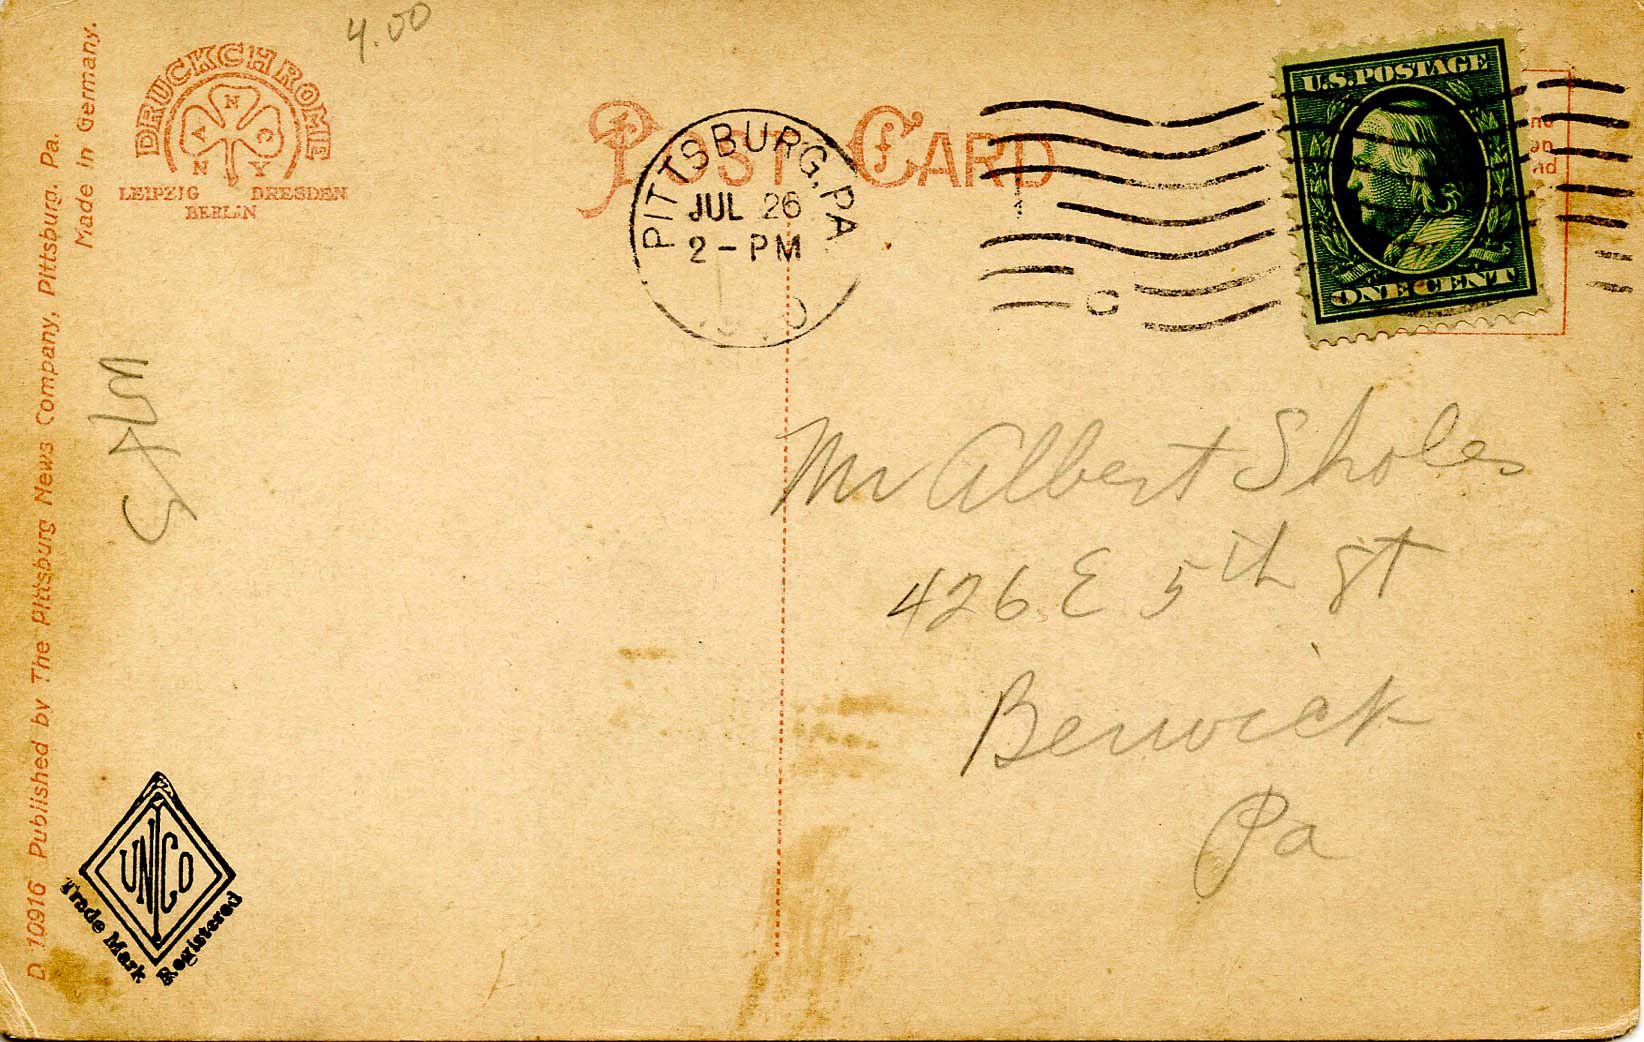 4.00
DRUCKCHROME
A N C
N Y
LEIPZIG DRESDEN
BERLIN
POST CARD
PITTSBURG, PA
JUL 26
2 - PM
C
U.S. POSTAGE
ONE CENT
Made in Germany.
D 10916 Published by The Pittsburg News Company, Pittsburg. Pa.
Mr Albert Sholes
426 E 5th St
Berwick
Pa
UNCO
Trade Mark
Registered